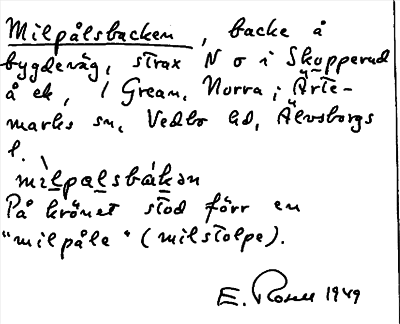 Milpålsbacken, backe å
bygdeväg, strax N o i Skopperud
å ek, 1 Grean, Norra i Ärte-
marks sn, Vedbo hd, Älvsborgs
l.
På krönet stod förr en
"milpåle" (milstolpe).
E. Rosell 1949